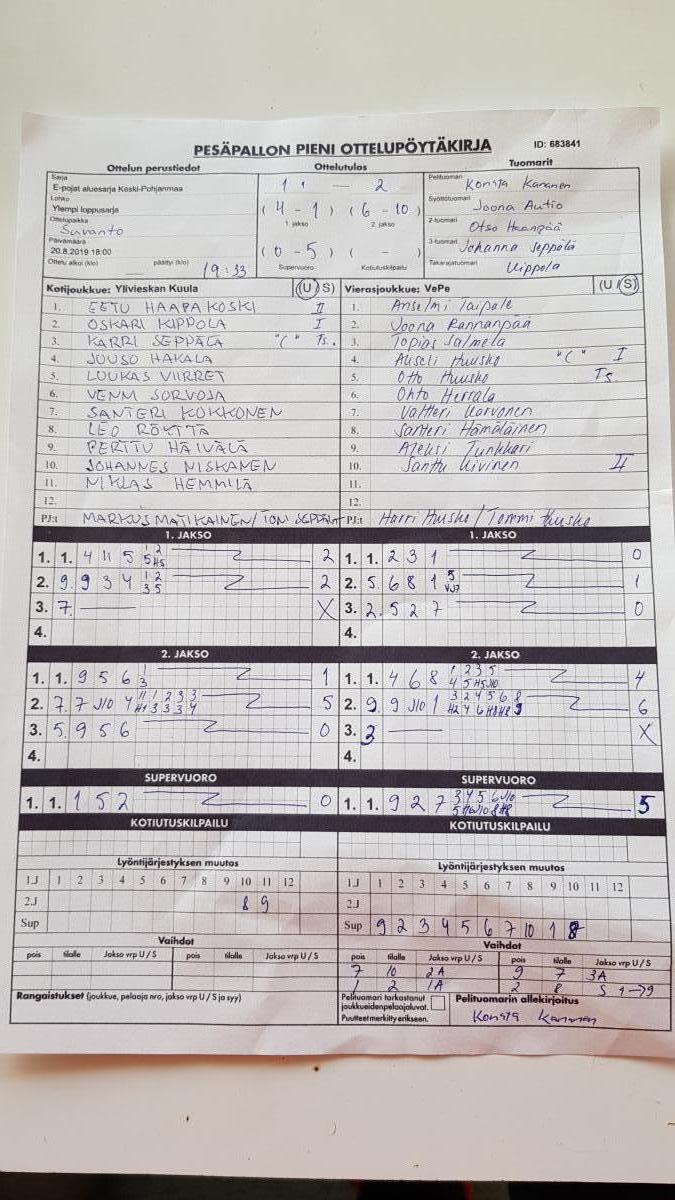 PESÄPALLON PIENI OTTELUPÖYTÄKIRJA ID: 683841
Ottelun perustiedot Ottelutulos Tuomarit
Sarja
E-pojat aluesarja Keski-Pohjanmaa
Lohko
Ylempi loppusarja
Ottelupaikka
Suvanto
Päivämäärä
20.8.2019 18:00
Ottelu alkoi (klo) päättyi (klo) 19:33
1 — 2
(4 - 1) (6 - 10)
1. jakso 2. jakso
(0 - 5) ( - )
Supervuoro Kotiutuskilpailu
Pelituomari Konsta Kananen
Syöttötuomari Joona Autio
2-tuomari Otso Haanpää
3-tuomari Johanna Seppälä
Takarajatuomari Kippola
Kotijoukkue: Ylivieskan Kuula (U) S)
1. EETU HAAPAKOSKI II
2. OSKARI KIPPOLA I
3. KARRI SEPPÄLÄ "C" Ts.
4. JUUSO HAKALA
5. LOUKAS VIRRET
6. VENM SORVOJA
7. SANTERI KOKKONEN
8. LEO RÖYTTÄ
9. PERTTU HÄIVÄLÄ
10. JOHANNES NISKANEN
11. NIKLAS HEMMILÄ
12.
PJ:t MARKUS MATIKAINEN / TONI SEPPÄLÄ
Vierasjoukkue: VePe (U/S)
1. Anselmi Taipale
2. Joona Rannanpää
3. Topias Salmela
4. Auseli Huusko "C" I
5. Otto Huusko Ts.
6. Ohto Herrala
7. Valtteri Korvonen
8. Santeri Hämäläinen
9. Aleksi Junkkari
10. Santtu Kivinen II
11.
12.
PJ:t Harri Huusko / Tommi Huusko
1. JAKSO
1. 1. 4 11 5 1 2 5 H5 2
2. 9. 9 3 4 1 2 3 5 2
3. 7. X
4.
1. JAKSO
1. 1. 2 3 1 0
2. 5. 6 8 1 5 VJ7 1
3. 2. 5 2 7 0
4.
2. JAKSO
1. 1. 9 5 6 1 3 1
2. 7. 7 J10 4 11 1 2 3 3 H1 3 3 3 4 5
3. 5. 9 5 6 0
4.
2. JAKSO
1. 1. 4 6 8 1 2 3 5 4 5 H5 J10 4
2. 9. 9 J10 1 3 2 4 5 6 8 H2 4 6 H8 H8 9 6
3. 3 X
4.
SUPERVUORO
1. 1. 1 5 2 0
SUPERVUORO
1. 1. 9 2 7 3 4 5 6 J10 5 H6 J10 8 H8 5
KOTIUTUSKILPAILU
KOTIUTUSKILPAILU
Lyöntijärjestyksen muutos
1.J 1 2 3 4 5 6 7 8 9 10 11 12
2.J 8 9
Sup
Lyöntijärjestyksen muutos
1.J 1 2 3 4 5 6 7 8 9 10 11 12
2.J
Sup 9 2 3 4 5 6 7 10 1 8
Vaihdot
pois tilalle Jakso vrp U / S pois tilalle Jakso vrp U / S
Vaihdot
pois tilalle Jakso vrp U / S pois tilalle Jakso vrp U / S
7 10 2A 9 7 3A
1 2 1A 2 8 S 1→9
Rangaistukset (joukkue, pelaaja nro, jakso vrp U / S ja syy)
Pelituomari tarkastanut
joukkueidenpelaajaluvat.
Puutteet merkitty erikseen.
Pelituomarin allekirjoitus
Konsta Kananen